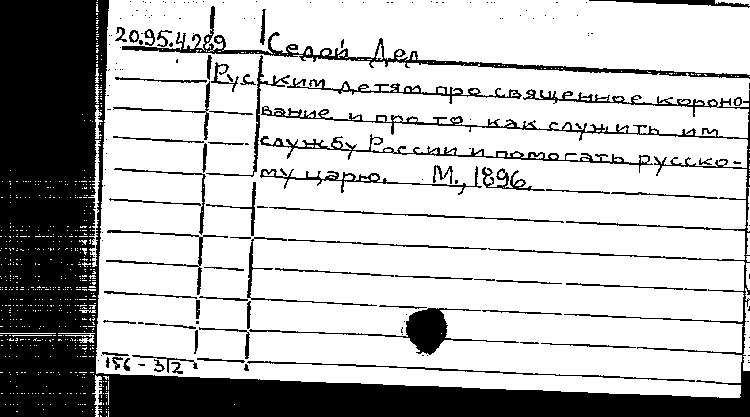 20.95.4.289 Седой Дед
Русским детям про священное короно-
вание и про то, как служить им
службу России и помогать русско-
му царю. М., 1896.
156 - 312